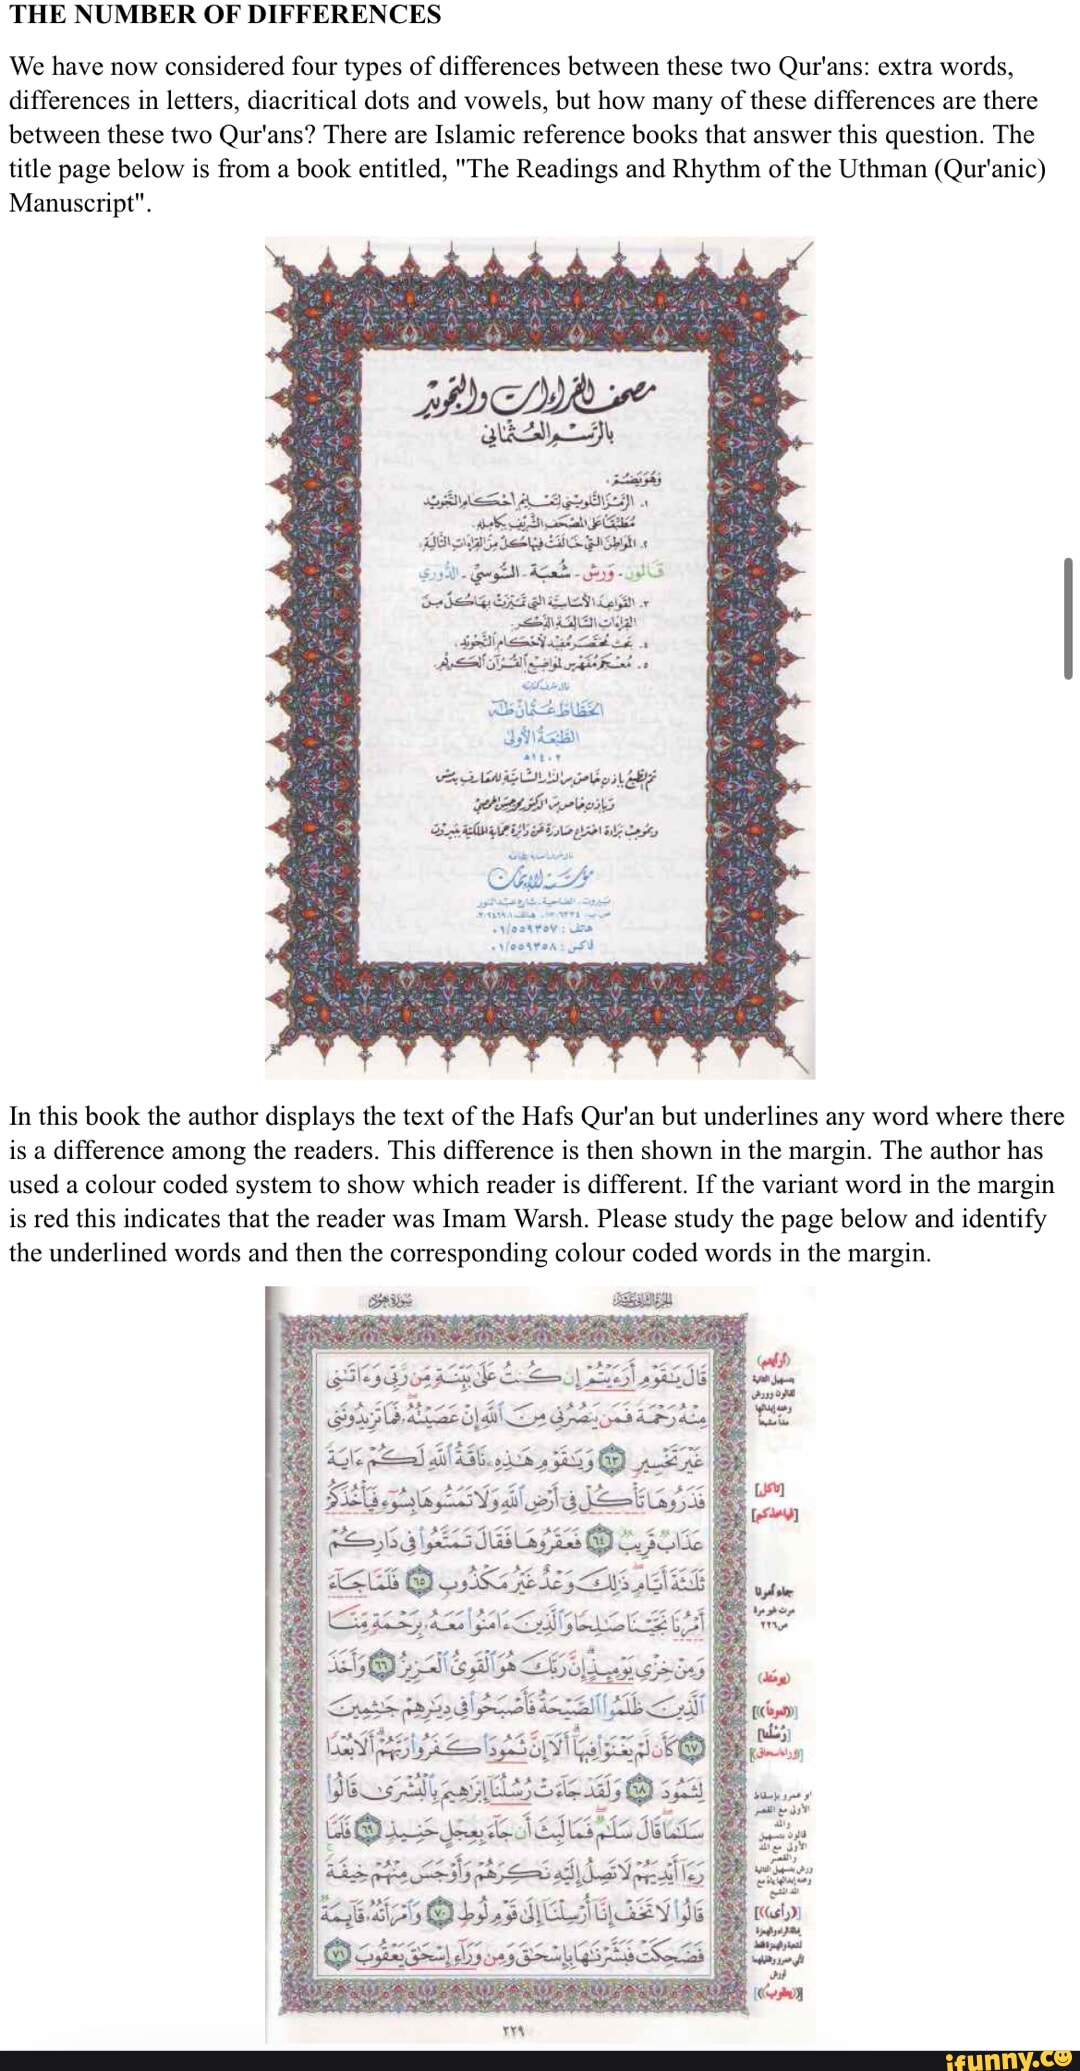 THE NUMBER OF DIFFERENCES
We have now considered four types of differences between these two Qur'ans: extra words,
differences in letters, diacritical dots and vowels, but how many of these differences are there
between these two Qur'ans? There are Islamic reference books that answer this question. The
title page below is from a book entitled, "The Readings and Rhythm of the Uthman (Qur'anic)
Manuscript".
مصحف القراءات والتجويد
بالرسم العثماني
وهو يضم:
١. الرمز التلويني لتعليم أحكام التجويد
مطبقا على المصحف الشريف بكامله.
٢. المواطن التي خالفت فيها كل من القراءات التالية:
قالون - ورش - شعبة - السوسي - الدوري
٣. القواعد الأساسية التي تميزت بها كل من
القراءات السالفة الذكر.
٤. بحث مختصر مفيد لأحكام التجويد.
٥. معجم مفهرس لمواضيع القرآن الكريم.
الخطاط عثمان طه
الطبعة الأولى
هاتف : ٠١/٥٥٩٣٥٧
فاكس : ٠١/٥٥٩٣٥٨
In this book the author displays the text of the Hafs Qur'an but underlines any word where there
is a difference among the readers. This difference is then shown in the margin. The author has
used a colour coded system to show which reader is different. If the variant word in the margin
is red this indicates that the reader was Imam Warsh. Please study the page below and identify
the underlined words and then the corresponding colour coded words in the margin.
الجزء الثاني عشر
سورة هود
قَالَ يَـٰقَوْمِ أَرَءَيْتُمْ إِن كُنتُ عَلَىٰ بَيِّنَةٍ مِّن رَّبِّي وَءَاتَىٰنِي
مِنْهُ رَحْمَةً فَمَن يَنصُرُنِي مِنَ ٱللَّهِ إِنْ عَصَيْتُهُۥ فَمَا تَزِيدُونَنِي
غَيْرَ تَخْسِيرٍ ٦٣ وَيَـٰقَوْمِ هَـٰذِهِۦ نَاقَةُ ٱللَّهِ لَكُمْ ءَايَةً
فَذَرُوهَا تَأْكُلْ فِىٓ أَرْضِ ٱللَّهِ وَلَا تَمَسُّوهَا بِسُوٓءٍ فَيَأْخُذَكُمْ
عَذَابٌ قَرِيبٌ ٦٤ فَعَقَرُوهَا فَقَالَ تَمَتَّعُوا۟ فِى دَارِكُمْ
ثَلَـٰثَةَ أَيَّامٍ ذَٰلِكَ وَعْدٌ غَيْرُ مَكْذُوبٍ ٦٥ فَلَمَّا جَآءَ
أَمْرُنَا نَجَّيْنَا صَـٰلِحًا وَٱلَّذِينَ ءَامَنُوا۟ مَعَهُۥ بِرَحْمَةٍ مِّنَّا
وَمِنْ خِزْىِ يَوْمِئِذٍ إِنَّ رَبَّكَ هُوَ ٱلْقَوِىُّ ٱلْعَزِيزُ ٦٦ وَأَخَذَ
ٱلَّذِينَ ظَلَمُوا۟ ٱلصَّيْحَةُ فَأَصْبَحُوا۟ فِى دِيَـٰرِهِمْ جَـٰثِمِينَ
٦٧ كَأَن لَّمْ يَغْنَوْا۟ فِيهَآ أَلَآ إِنَّ ثَمُودَا۟ كَفَرُوا۟ رَبَّهُمْ أَلَا بُعْدًا
لِّثَمُودَ ٦٨ وَلَقَدْ جَآءَتْ رُسُلُنَآ إِبْرَٰهِيمَ بِٱلْبُشْرَىٰ قَالُوا۟
سَلَـٰمًا قَالَ سَلَـٰمٌ فَمَا لَبِثَ أَن جَآءَ بِعِجْلٍ حَنِيذٍ ٦٩ فَلَمَّا
رَءَآ أَيْدِيَهُمْ لَا تَصِلُ إِلَيْهِ نَكِرَهُمْ وَأَوْجَسَ مِنْهُمْ خِيفَةً
قَالُوا۟ لَا تَخَفْ إِنَّآ أُرْسِلْنَآ إِلَىٰ قَوْمِ لُوطٍ ٧٠ وَٱمْرَأَتُهُۥ قَآئِمَةٌ
فَضَحِكَتْ فَبَشَّرْنَـٰهَا بِإِسْحَـٰقَ وَمِن وَرَآءِ إِسْحَـٰقَ يَعْقُوبَ ٧١
٢٢٩
ifunny.co